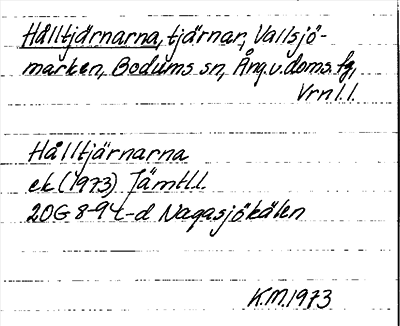 Hålltjärnarna, tjärnar, Vallsjö-
marken, Bodums sn, Ång. v. doms. fg,
Vrnl. l.
Hålltjärnarna
ek (1973) Jämtl. l.
20G 8-9 c-d Nagasjökälen
K.M. 1973